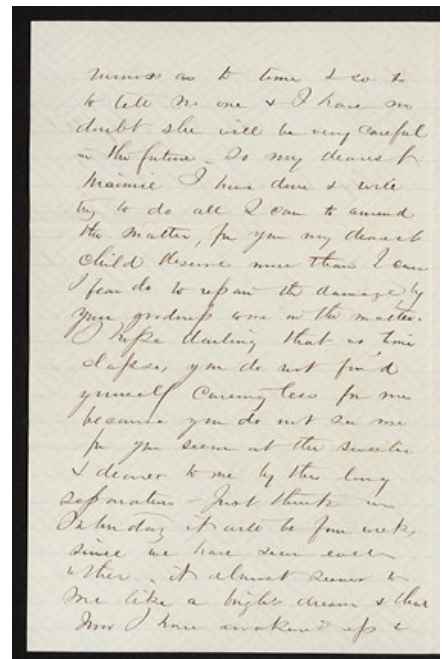 as to time & so &
to tell no one & I have no
doubt she will be very careful
in the future. So my dearest
Maimie I have done & will
try to do all I can to amend
the matter, for you my dearest
child deserve more than I can
I fear do to repair the damage by
your goodness in the matter.
I hope darling that as time
elapses, you do not find
yourself caring less for me
because you do not see me
for you seem all the sweeter
& dearer to me by this long
separation - Just think on
Saturday it will be four weeks
since we have seen each
other. It almost seems to
me like a bright dream & that
now I have awakened up &